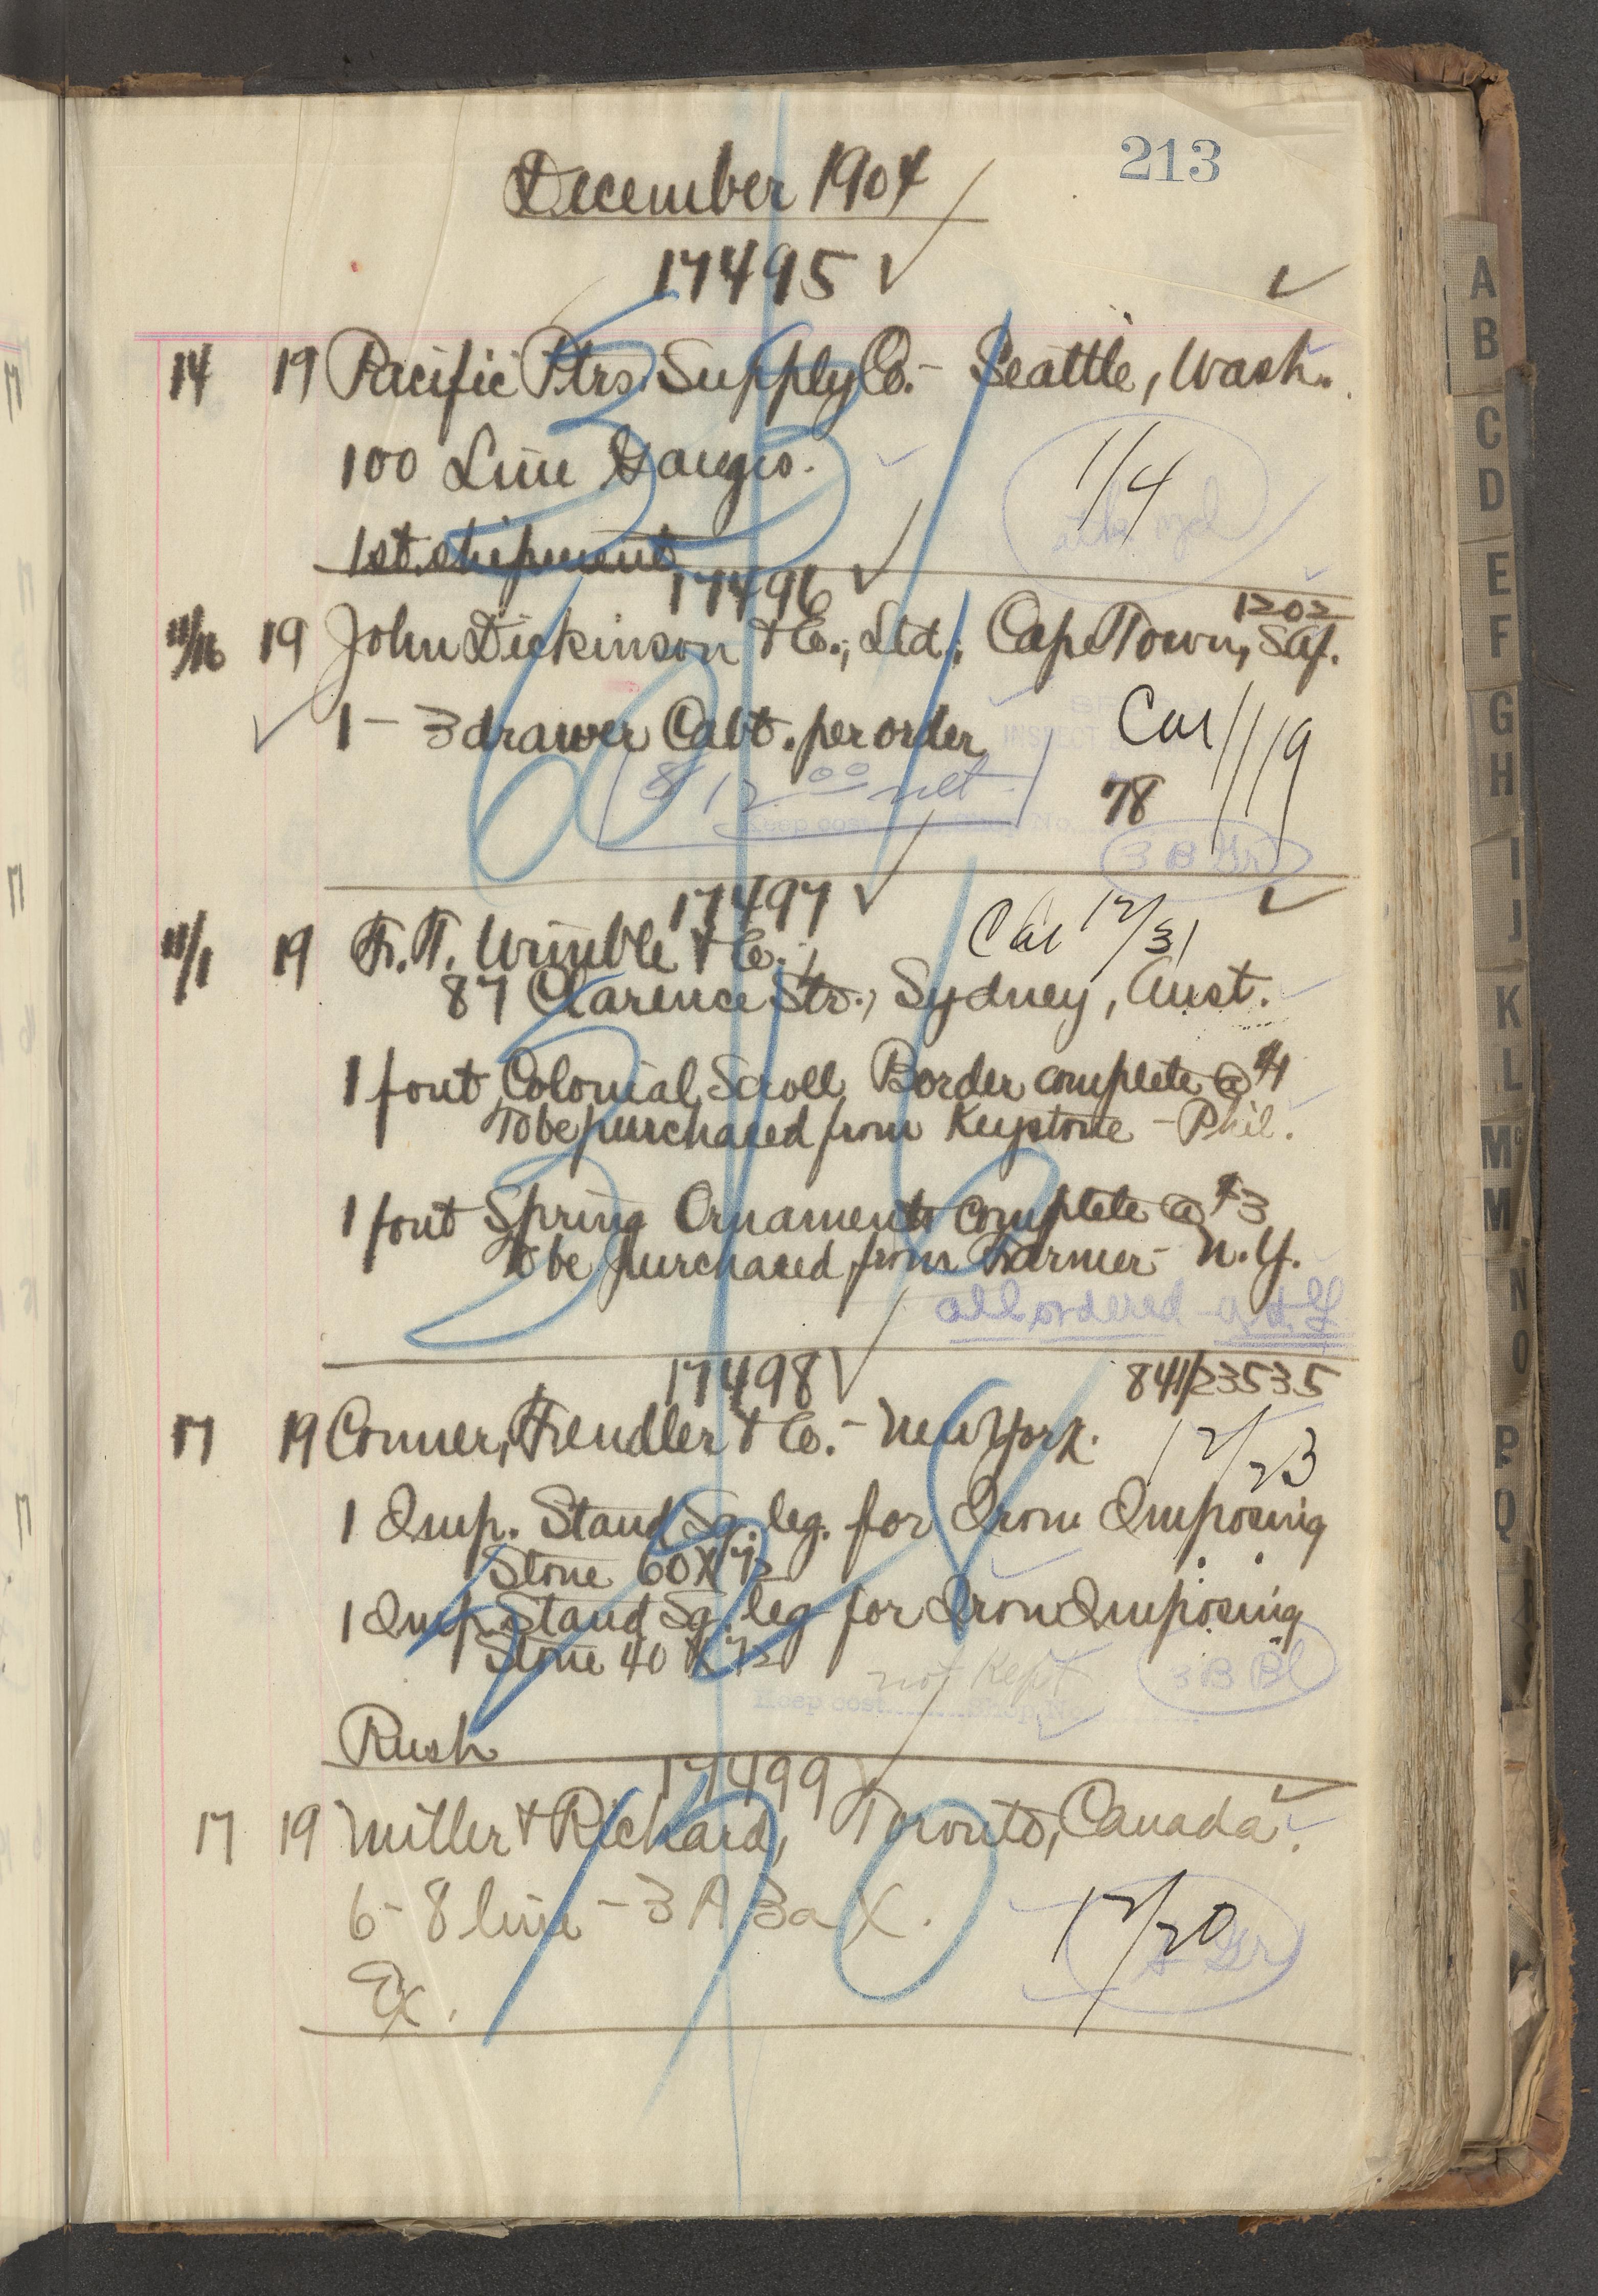 213
December 1904
17495 ✓
14 19 Pacific Ptrs. Supply Co. - Seattle, Wash.
100 Line Gauges.
1/4
1st. shipment
17496 ✓
1202
11/16 19 John Dickinson & Co., Ltd., Cape Town, S. Af.
1 - 3 drawer Cabt. per order
Car 1/19
$12.00 net
78
Keep cost
3 B Gr
17497 ✓
Car 12/31
11/1 19 F. T. Wimble & Co.,
87 Clarence Str., Sydney, Aust.
1 font Colonial Scroll Border complete @ $4
To be purchased from Keystone - Phil.
1 font Spring Ornaments complete @ $3
To be purchased from Farmer - N.Y.
all ordered
17498 ✓
841/23535
17 19 Conner, Fendler & Co. - New York.
12/23
1 Imp. Stand Sq. leg. for Iron Imposing
Stone 60 X 72
1 Imp. Stand Sq. leg for Iron Imposing
Stone 40 X 72
not kept
3 B Bl
Keep cost Shop No.
Rush
17499
17 19 Miller & Richard, Toronto, Canada.
6 - 8 line - 3 A 3a X.
12/20
Ex.
A
B
C
D
E
F
G
H
I
J
K
L
Mc
M
N
O
P
Q